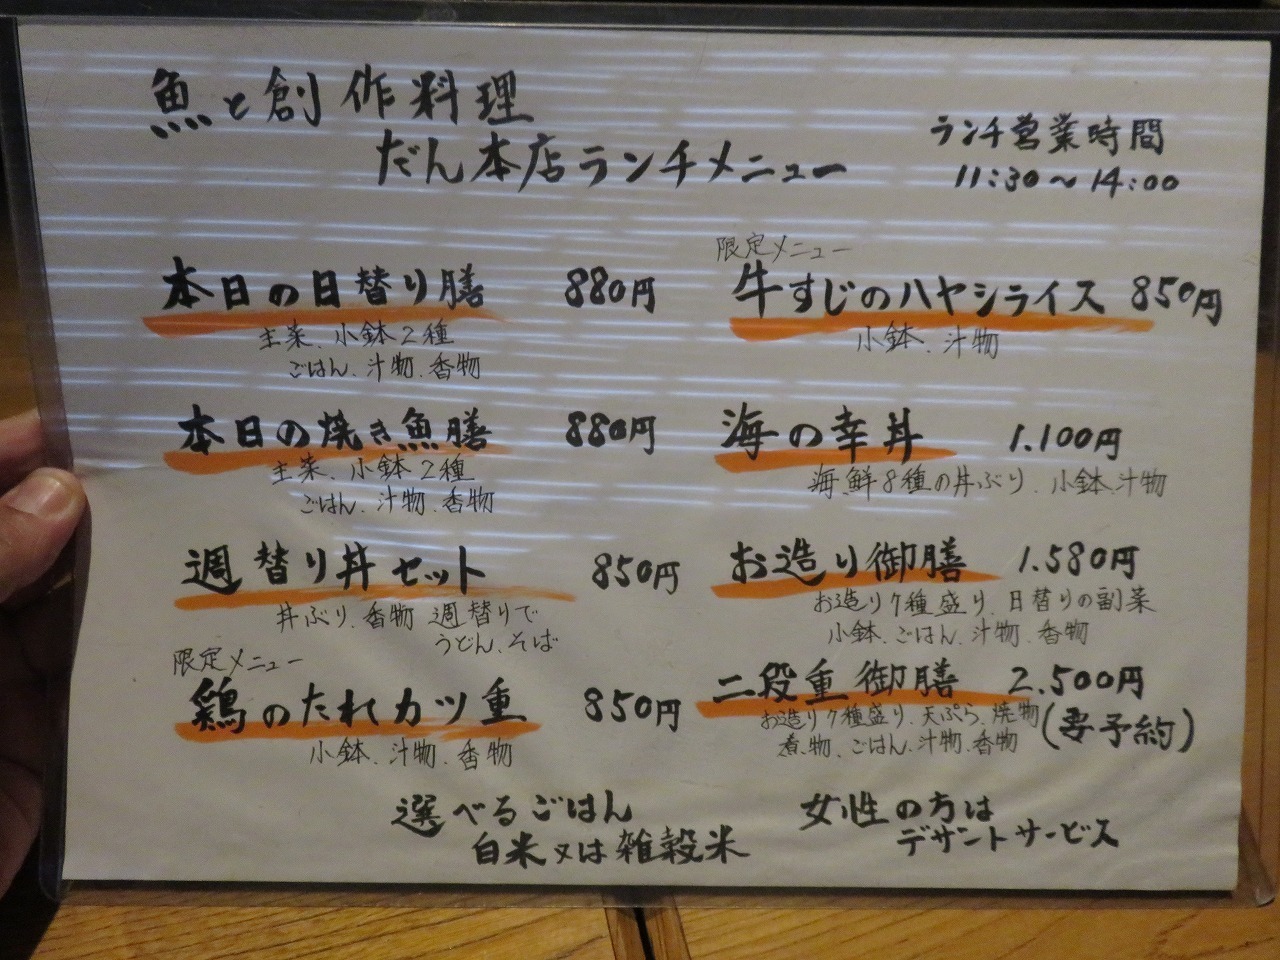 魚と創作料理
だん本店ランチメニュー
ランチ営業時間
11:30〜14:00
本日の日替り膳 880円
主菜、小鉢2種
ごはん、汁物、香物
本日の焼き魚膳 880円
主菜、小鉢2種
ごはん、汁物、香物
週替り丼セット 850円
丼ぶり、香物 週替りで
うどん、そば
限定メニュー
鶏のたれカツ重 850円
小鉢、汁物、香物
限定メニュー
牛すじのハヤシライス 850円
小鉢、汁物
海の幸丼 1.100円
海鮮8種の丼ぶり、小鉢、汁物
お造り御膳 1.580円
お造り7種盛り、日替りの副菜
小鉢、ごはん、汁物、香物
二段重御膳 2.500円
お造り7種盛り、天ぷら、焼物
煮物、ごはん、汁物、香物
(要予約)
選べるごはん
白米又は雑穀米
女性の方は
デザートサービス